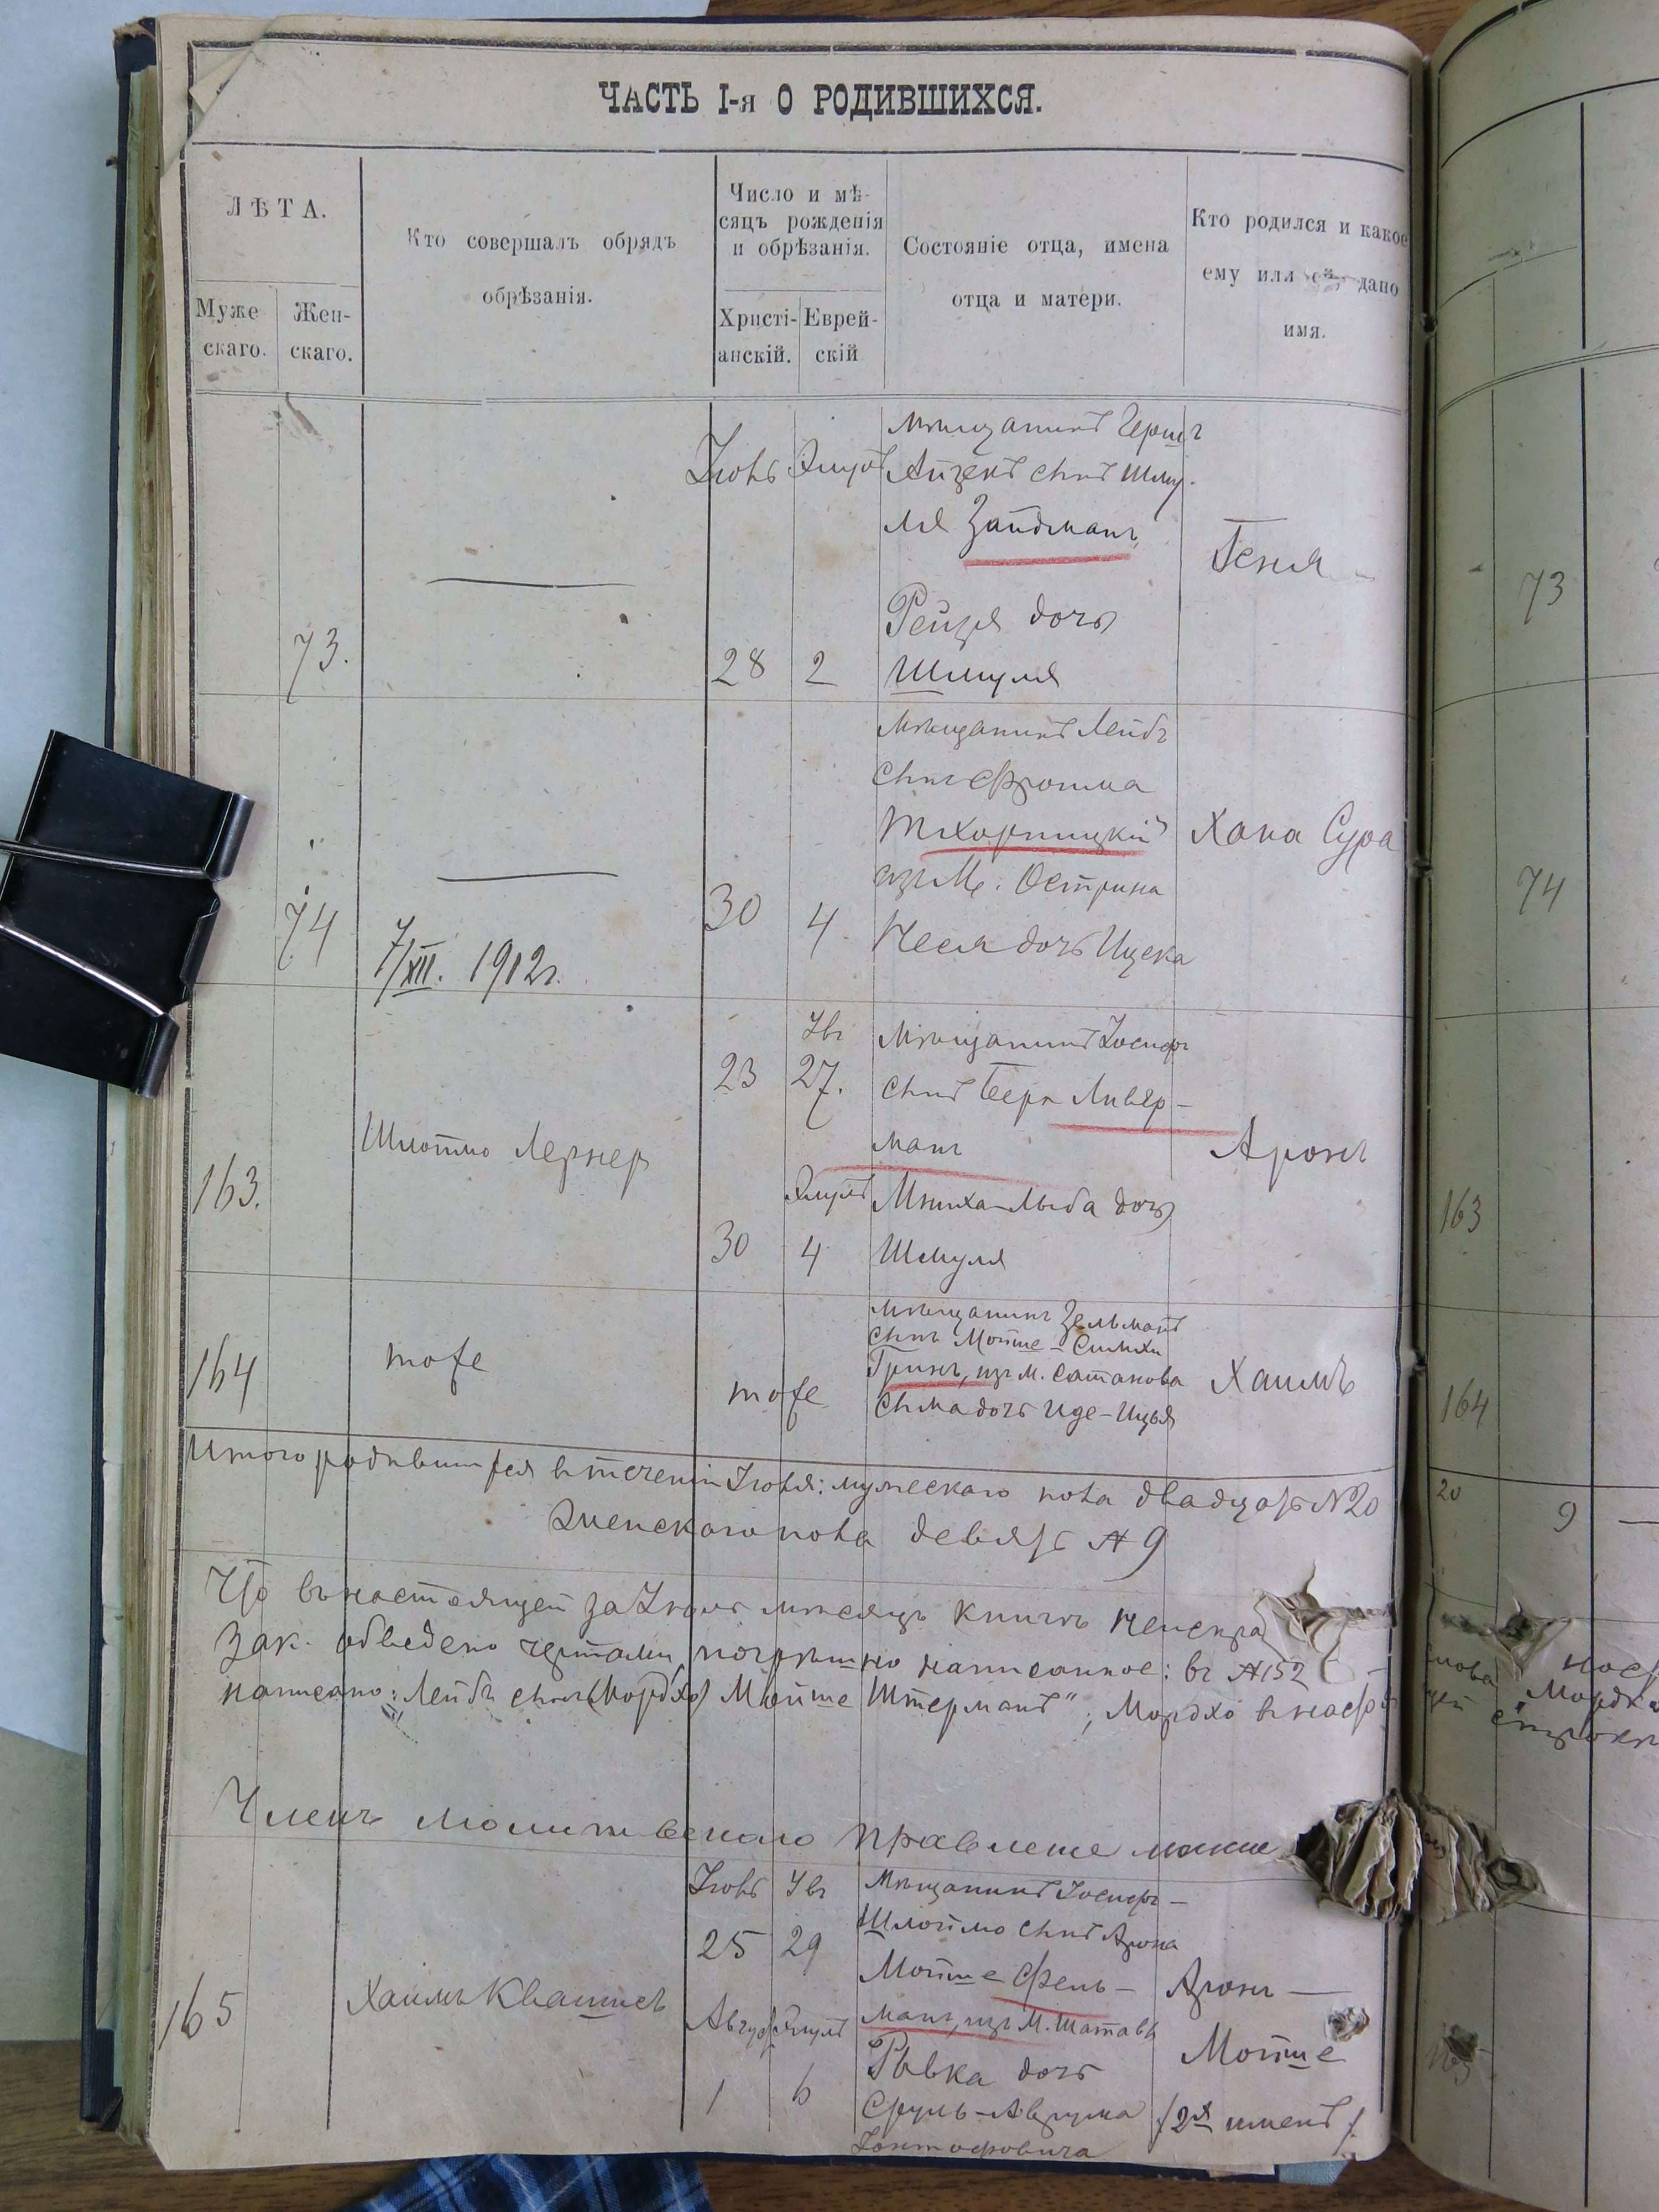 ЧАСТЬ I-я О РОДИВШИХСЯ.
ЛѢТА.
Муже
скаго.
Жен-
скаго.
Кто совершалъ обрядъ
обрѣзанія.
Число и мѣ-
сяцъ рожденія
и обрѣзанія.
Христі-
анскій.
Еврей-
скій
Состояніе отца, имена
отца и матери.
Кто родился и какое
ему или ей, дано
имя.
73.
Іюль Элулъ
28 2
мѣщанинъ Гершъ
Айзекъ сынъ Шму-
ля Зайдманъ,
Рейзя дочь
Шмуля
Геня
74
7/XII. 1912г.
30 4
Мѣщанинъ Лейбъ
сынъ Фроима
Тхорницкій
изъ М. Острина
Неся дочь Ицека
Хана Сура
163.
Шлоймо Лернер
23
Авъ
27.
Элулъ
30 4
Мѣщанинъ Іосифъ
сынъ Берк Ливер-
манъ
дочь
Шмуля
Аронъ
164
тоже
тоже
мѣщанинъ Зельманъ
сынъ Мойше-Симхи
Гринъ, изъ м. Сатанова
Сима дочь Иде-Ицья
Хаимъ
Итого родившихся втеченіи Іюля: мужескаго пола двадцать №20
Женскаго пола девять № 9
Что въ настоящей за Іюль мѣсяцъ книгѣ
Зак. обведено чертами погрѣшно написанное: въ №152
написано: Лейбъ сынъ (Мордхо) Мойше Штерманъ", Мордхо
Членъ Молитвеннаго Правленія
165
Хаимъ Квашневъ
Іюль Авъ
25 29
Август Элулъ
1 6
Мѣщанинъ Іосифъ-
Шлоймо сынъ Арона
Мойше Фель-
манъ, изъ М. Шатавы
Рывка дочь
Сруль-Аврума
Аронъ —
Мойше
/2я именъ/
73
74
163
164
20
9